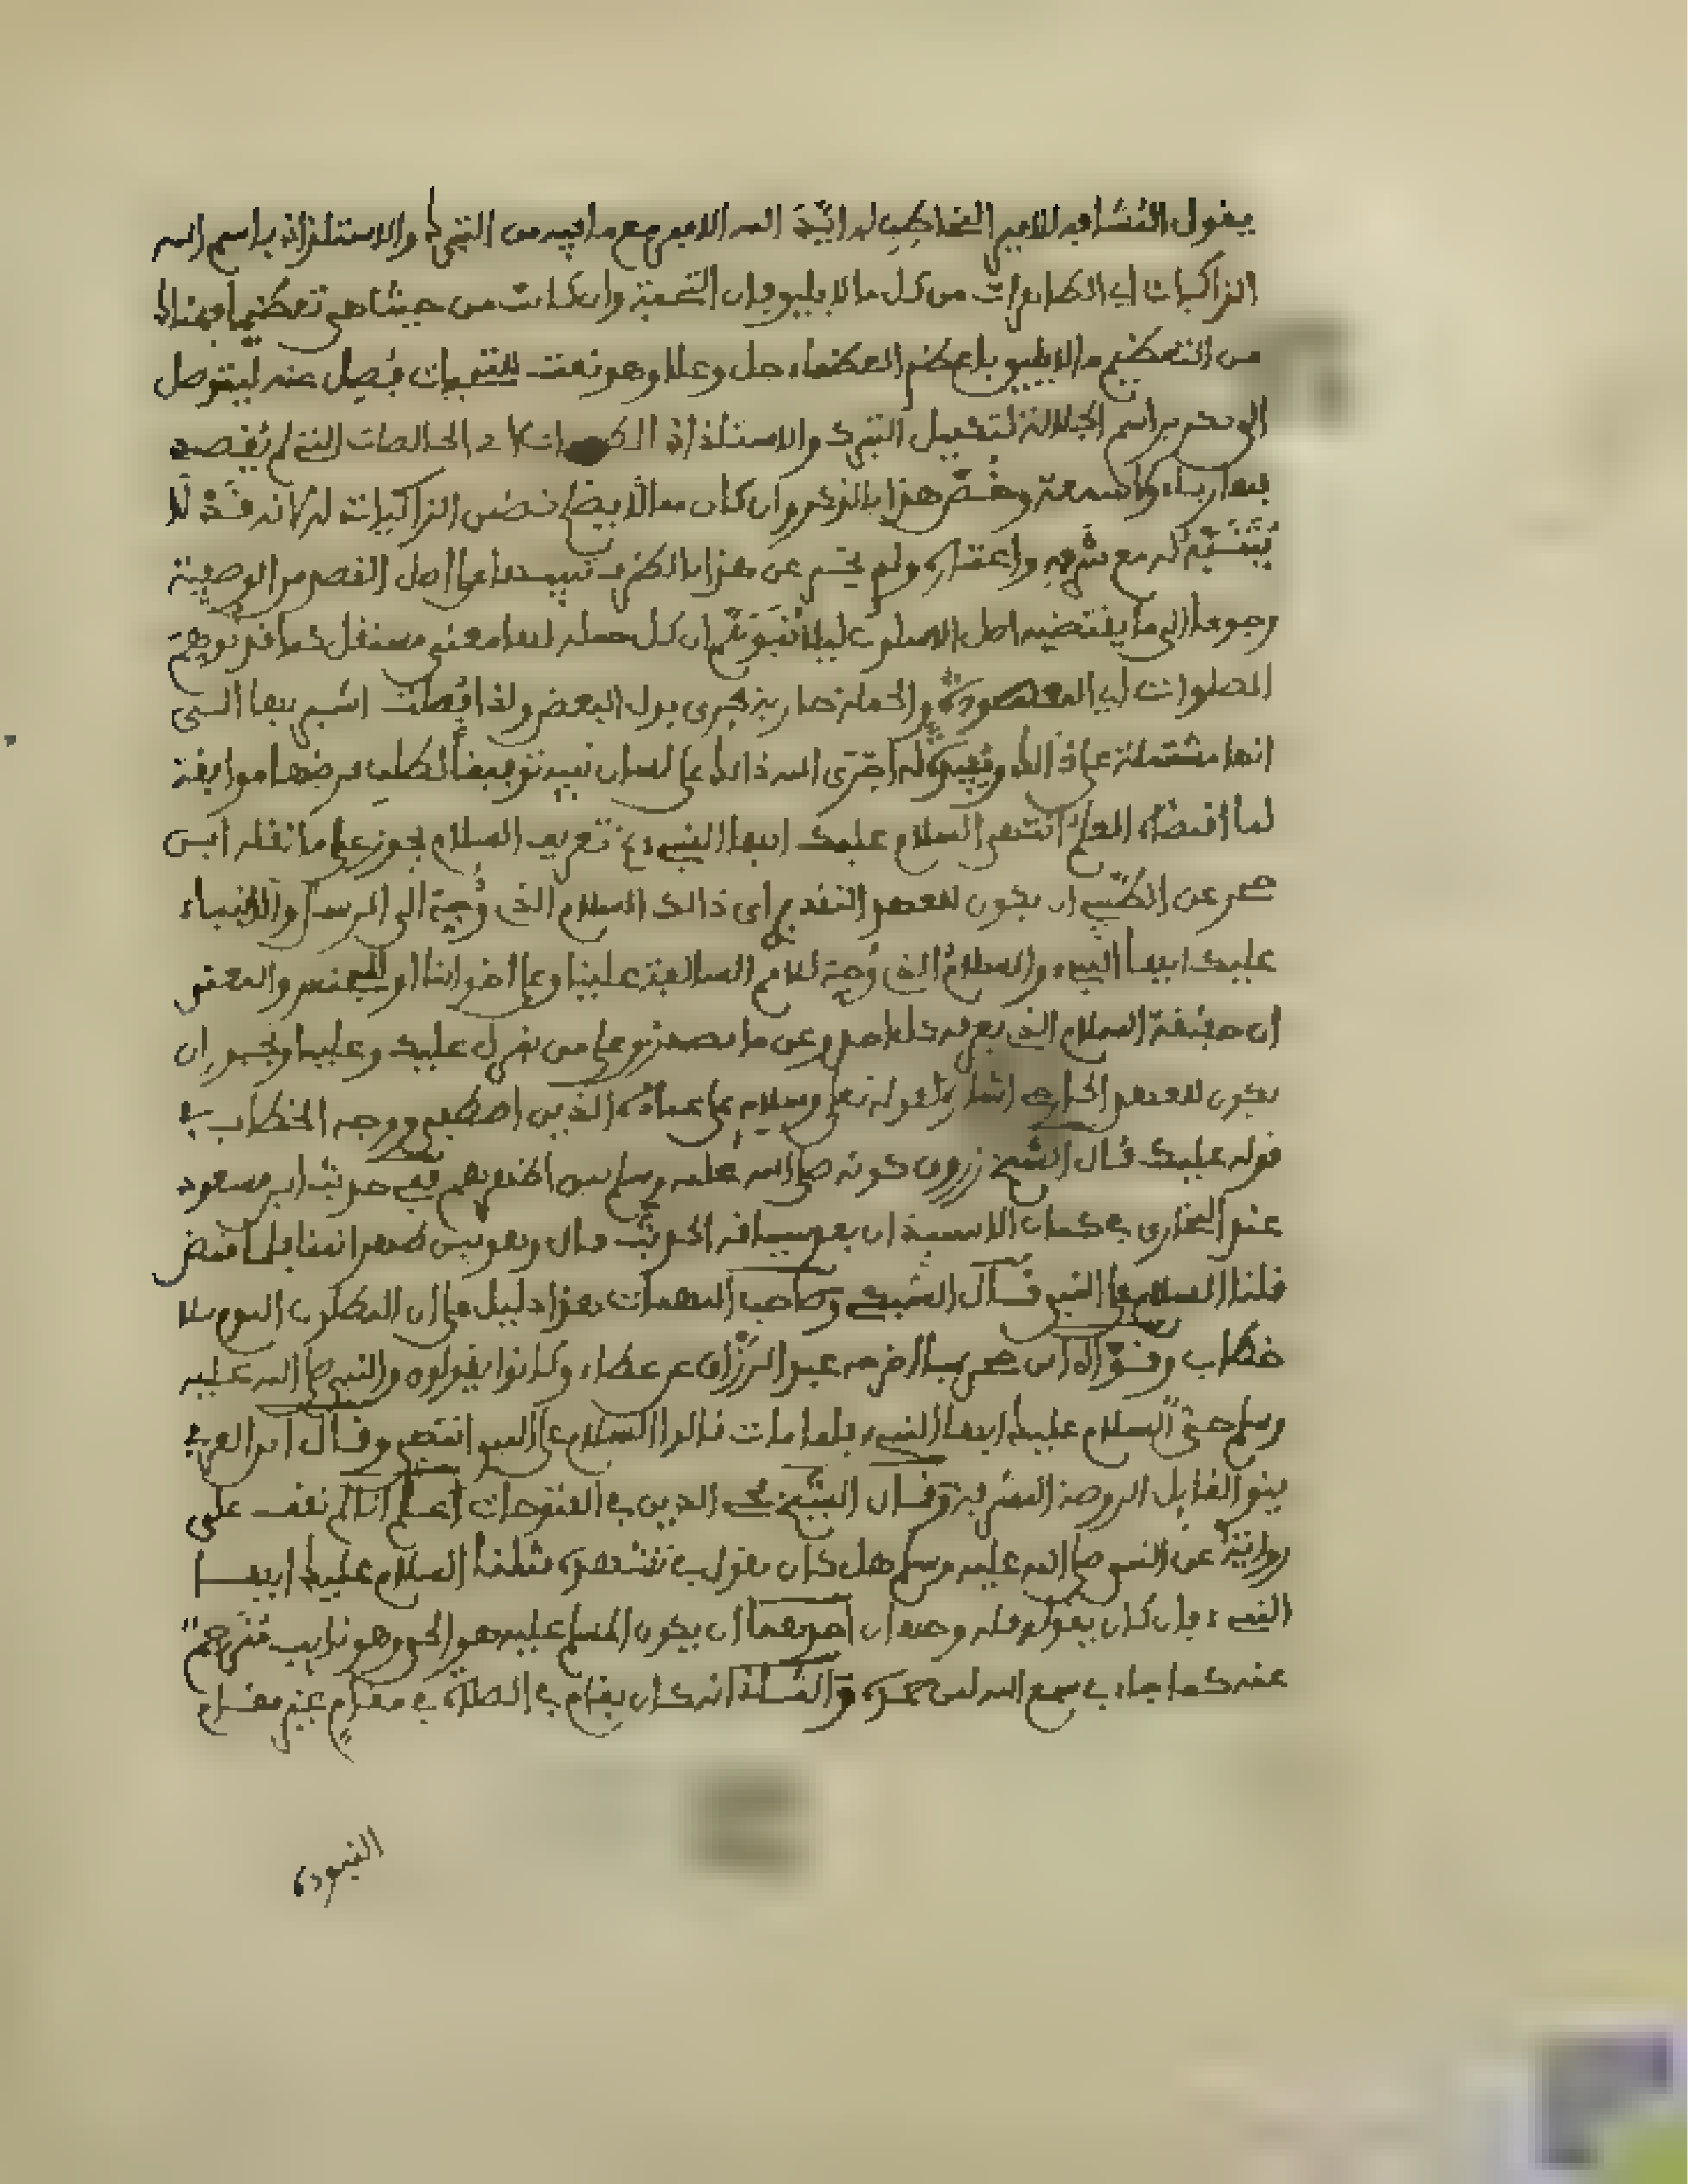 يقول النشا فيه للامير المخاطب له ايّد الله الامير مع ما فيه من التبرك والاستلذاذ باسم الله
الزاكيات اي الطاهرات من كل ما لا يليق فان التحية وان كانت من حيث هي تعظيما فهنالك
من التعظيم ما لا يليق باعظم العظماء جل وعلا وهو نعت للتحيات فصل عنه ليتوصل
الى تكرير اسم الجلالة لتكميل التبرك والاستلذاذ اي الخالصات التي لم يقصد
بها رياء ولا سمعة وخص هذا بالذكر وان كان مما لا يضا ضمن الزاكيات له لانه قد لا
يتنبه له مع شرفه واعتباره ولم يختم عن هذا بالظرف تنبيها على اصل القصد من الوصفية
رجوعا الى ما يقتضيه اصل الاسلوب ليلا يتوهم ان كل جملة لها معنى مستقل كما قد توهم
الصلوات اي المعهودة والجملة جارية مجرى بدل البعض ولذا فصلت اشير بها الى
انها مشتملة على ذلك اجرى الله ذلك على لسان نبيه توفيقا لطلب فرضها موافقة
لما اقتضاه انتهى السلام عليك ايها النبي تعريف السلام يجوز على ما نقله ابن
حجر عن الطيبي ان يكون للعهد التقديري اي ذلك السلام الذي وجه الى الرسل والانبياء
عليك ايها النبي والسلام الذي وجه للامم السالفة علينا وعلى اخواننا او للجنس والمعنى
ان حقيقة السلام الذي يعرفه كل احد وعن ما يصدر وعلى من ينزل عليك وعلينا ويجوز ان
يكون للعهد الخارجي اشارة لقوله تعلى وسلام على عباده الذين اصطفى ووجه الخطاب في
قوله عليك قال الشيخ زروق كونه صلى الله عليه وسلم بين اظهرهم ففي حديث ابن مسعود
عند البخاري في كتاب الاستيذان بعد سياقه الحديث قال وهو بين ظهرانينا فلما قبض
قلنا السلام على النبي قال السبكي وصاحب المهمات هذا دليل على ان المطلوب اليوم بلا
خطاب وقواه ابن حجر بما اخرجه عبد الرزاق عن عطاء وكانوا يقولون والنبي صلى الله عليه
وسلم حي السلام عليك ايها النبي فلما مات قالوا السلام على النبي انتهى وقال ابن العربي
ينو القايل الروضة الشريفة وقال الشيخ محي الدين في الفتوحات اعلم انا لم نقف على
رواية عن النبي صلى الله عليه وسلم هل كان يقول في تشهده مثلنا السلام عليك ايها
النبي فان كان يقوله فله وجهان احدهما ان يكون المسلم عليه هو الحق وهو نايب مترجم
عنه كما جاء في سمع الله لمن حمده والثاني انه كان يقام في الصلاة في مقام غير مقام
النبوة